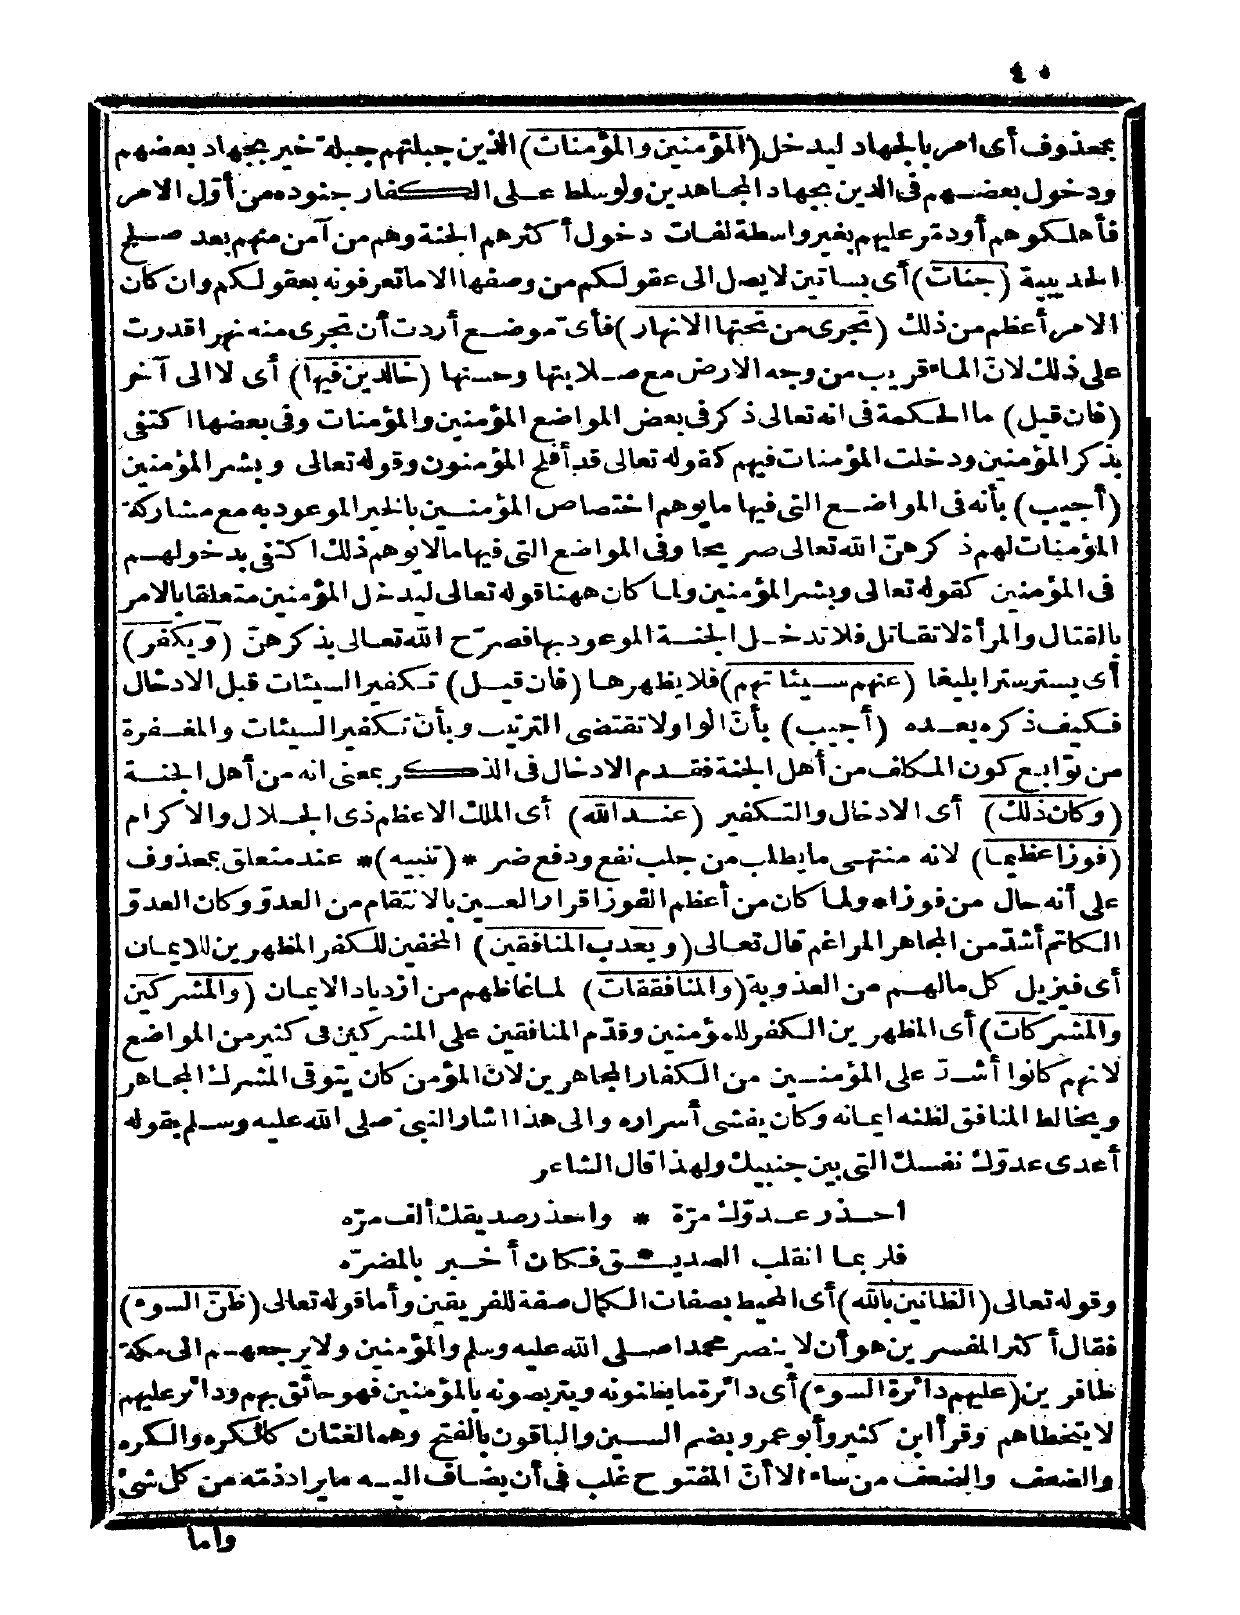 ٤٠
بمحذوف أى امر بالجهاد ليدخل (المؤمنين والمؤمنات) الذين جبلتهم جبلة خير بجهاد بعضهم
ودخول بعضهم فى الدين بجهاد المجاهدين ولو سلط على الكفار جنوده من أوّل الامر
فأهلكوهم أو دمّر عليهم بغير واسطة لفات دخول أكثرهم الجنة وهم من آمن منهم بعد صلح
الحديبية (جنات) أى بساتين لا يصل الى عقولكم من وصفها الا ما تعرفونه بعقولكم وان كان
الامر أعظم من ذلك (تجرى من تحتها الانهار) فأىّ موضع أردت أن تجرى منه نهرا قدرت
على ذلك لانّ الماء قريب من وجه الارض مع صلابتها وحسنها (خالدين فيها) أى لا الى آخر
(فان قيل) ما الحكمة فى انه تعالى ذكر فى بعض المواضع المؤمنين والمؤمنات وفى بعضها اكتفى
بذكر المؤمنين ودخلت المؤمنات فيهم كقوله تعالى قد أفلح المؤمنون وقوله تعالى وبشر المؤمنين
(أجيب) بأنه فى المواضع التى فيها ما يوهم اختصاص المؤمنين بالخير الموعود به مع مشاركة
المؤمنات لهم ذكرهنّ الله تعالى صريحا وفى المواضع التى فيها ما لا يوهم ذلك اكتفى بدخولهم
فى المؤمنين كقوله تعالى وبشر المؤمنين ولما كان ههنا قوله تعالى ليدخل المؤمنين متعلقا بالامر
بالقتال والمرأة لا تقاتل فلا تدخل الجنة الموعود بها فصرّح الله تعالى بذكرهنّ (ويكفر)
أى يستر سترا بليغا (عنهم سيئاتهم) فلا يظهرها (فان قيل) تكفير السيئات قبل الادخال
فكيف ذكره بعده (أجيب) بأنّ الواو لا تقتضى الترتيب وبأنّ تكفير السيئات والمغفرة
من توابع كون المكلف من أهل الجنة فقدم الادخال فى الذكر بمعنى انه من أهل الجنة
(وكان ذلك) أى الادخال والتكفير (عند الله) أى الملك الاعظم ذى الجلال والاكرام
(فوزا عظيما) لانه منتهى ما يطلب من جلب نفع ودفع ضر * (تنبيه) * عند متعلق بمحذوف
على أنه حال من فوزا ولما كان من أعظم الفوز اقرار العين بالانتقام من العدوّ وكان العدوّ
الكاتم أشدّ من المجاهر المراغم قال تعالى (ويعذب المنافقين) المخفين للكفر المظهرين للايمان
أى فيزيل كل مالهم من العذوبة (والمنافقات) لما غاظهم من ازدياد الايمان (والمشركين
والمشركات) أى المظهرين الكفر للمؤمنين وقدّم المنافقين على المشركين فى كثير من المواضع
لانهم كانوا أشدّ على المؤمنين من الكفار المجاهرين لانّ المؤمن كان يتوقى المشرك المجاهر
ويخالط المنافق لظنه ايمانه وكان يفشى أسراره والى هذا اشار النبىّ صلى الله عليه وسلم بقوله
أعدى عدوّك نفسك التى بين جنبيك ولهذا قال الشاعر
احذر عدوّك مرّة * واحذر صديقك ألف مرّه
فلربما انقلب الصديـ*ـق فكان أخبر بالمضرّه
وقوله تعالى (الظانين بالله) أى المحيط بصفات الكمال صفة للفريقين وأما قوله تعالى (ظنّ السوء)
فقال أكثر المفسرين هو أن لا ينصر محمدا صلى الله عليه وسلم والمؤمنين ولا يرجعهم الى مكة
ظافرين (عليهم دائرة السوء) أى دائرة ما يظنونه ويتربصونه بالمؤمنين فهو حائق بهم ودائر عليهم
لا يتخطاهم وقرأ ابن كثير وأبو عمرو بضم السين والباقون بالفتح وهما لغتان كالكره والكره
والضعف والضعف من ساء الا أنّ المفتوح غلب فى أن يضاف اليه ما يراد ذمّه من كل شئ
واما